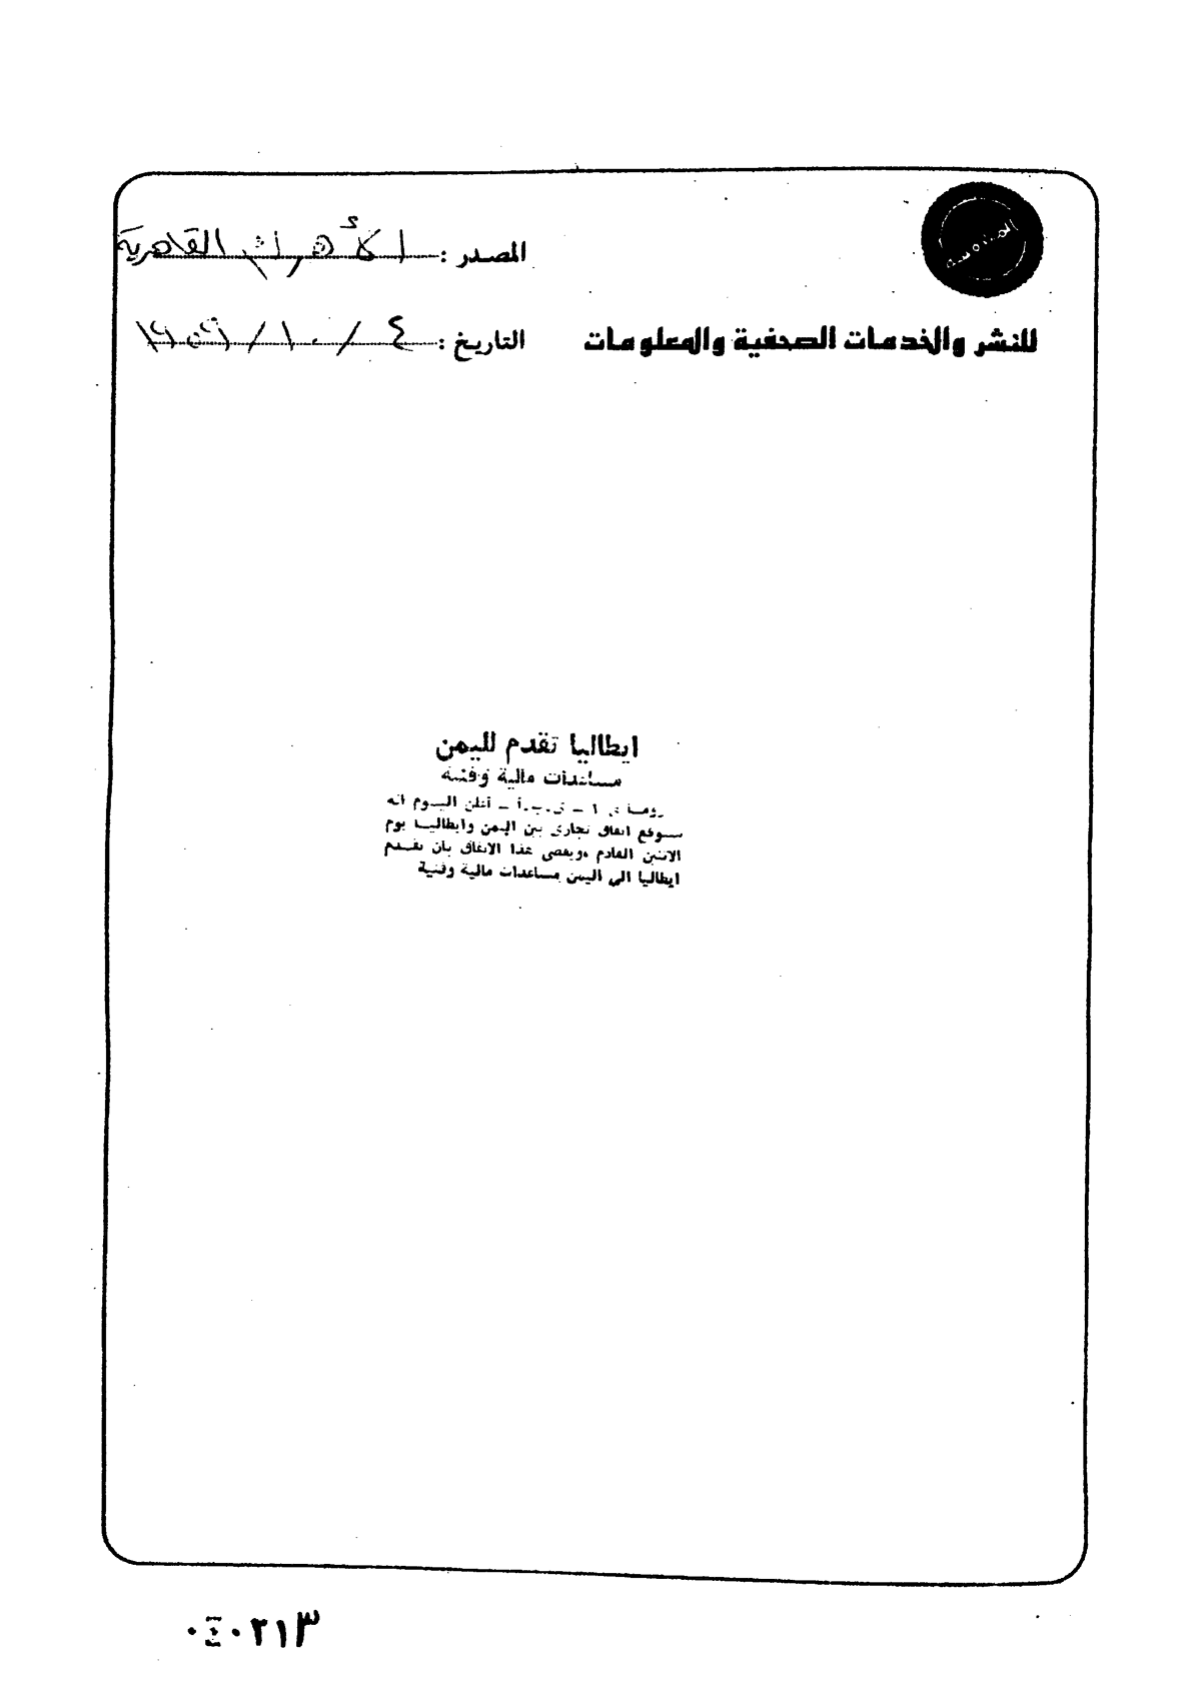 المصدر : الأهرام القاهرية
للنشر والخدمات الصحفية والمعلومات
التاريخ : ٤ / ١٠ / ١٩٥٩
ايطاليا تقدم لليمن
مساعدات مالية وفنية
روما في ١ – ي.ب.أ – أعلن اليوم انه
سيوقع اتفاق تجارى بين اليمن وايطاليا يوم
الاثنين القادم ويقضى هذا الاتفاق بان تقدم
ايطاليا الى اليمن مساعدات مالية وفنية